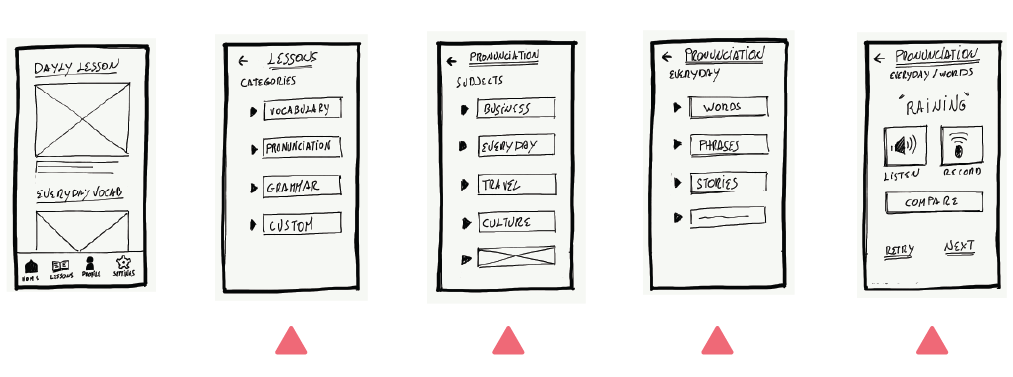 DAYLY LESSON
EVERYDAY VOCAB
HOME LESSONS PROFILE SETTINGS
LESSONS
CATEGORIES
VOCABULARY
PRONUNCIATION
GRAMMAR
CUSTOM
PRONUNCIATION
SUBJECTS
BUSINESS
EVERYDAY
TRAVEL
CULTURE
PRONUNCIATION
EVERYDAY
WORDS
PHRASES
STORIES
PRONUNCIATION
EVERYDAY/WORDS
"RAINING"
LISTEN RECORD
COMPARE
RETRY NEXT